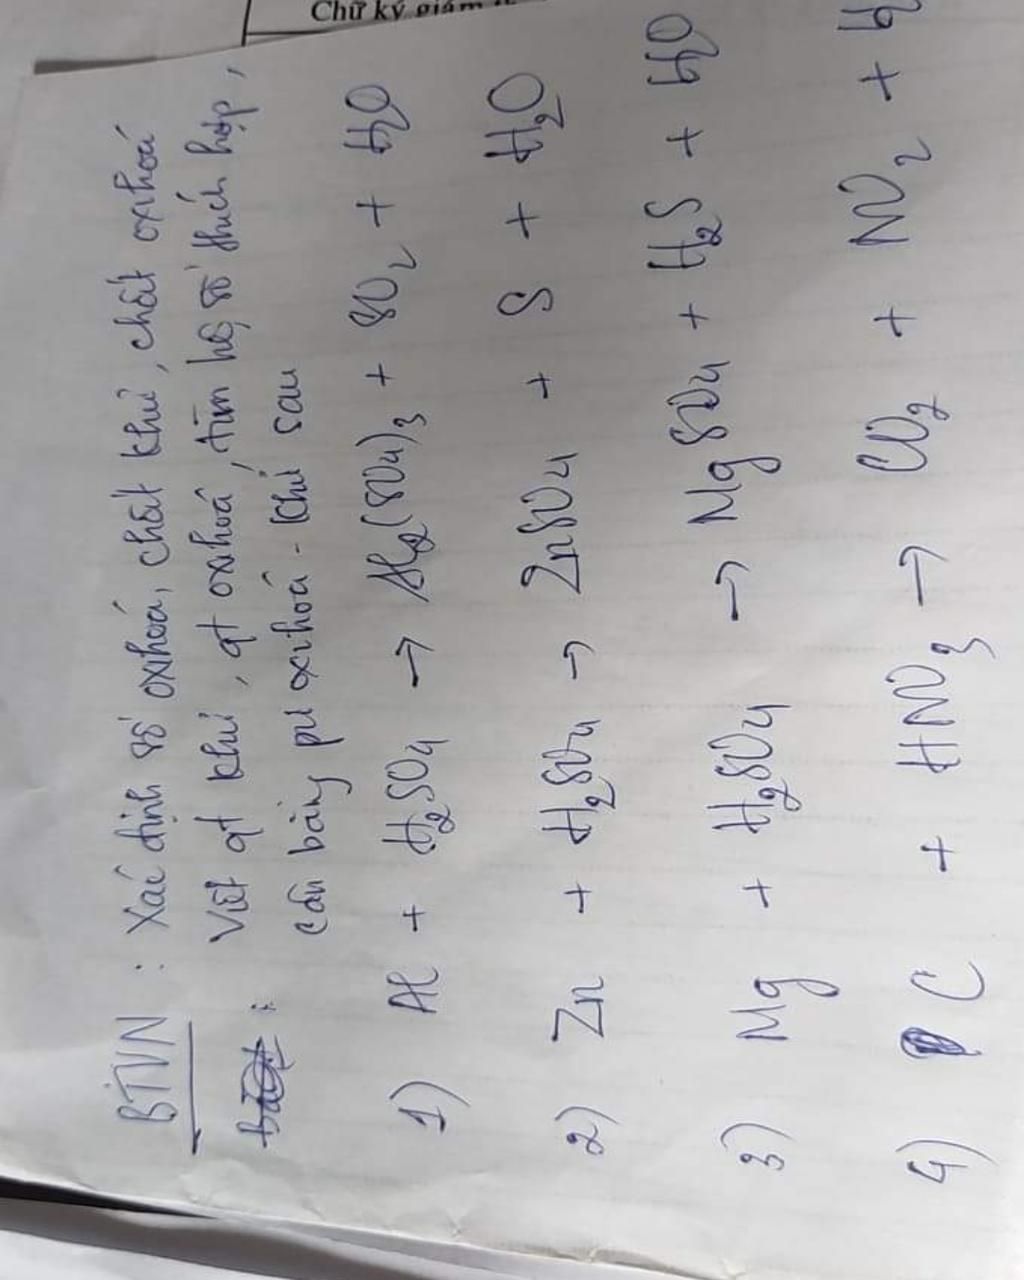 Chữ ký giám
BTVN : Xác định số oxihoá, chất khử, chất oxihoá
Viết qt khử, qt oxihoá, tìm hệ số thích hợp,
cân bằng pư oxihoá - khử sau
1) Al + H₂SO₄ → Al₂(SO₄)₃ + SO₂ + H₂O
2) Zn + H₂SO₄ → ZnSO₄ + S + H₂O
3) Mg + H₂SO₄ → MgSO₄ + H₂S + H₂O
4) C + HNO₃ → CO₂ + NO₂ +